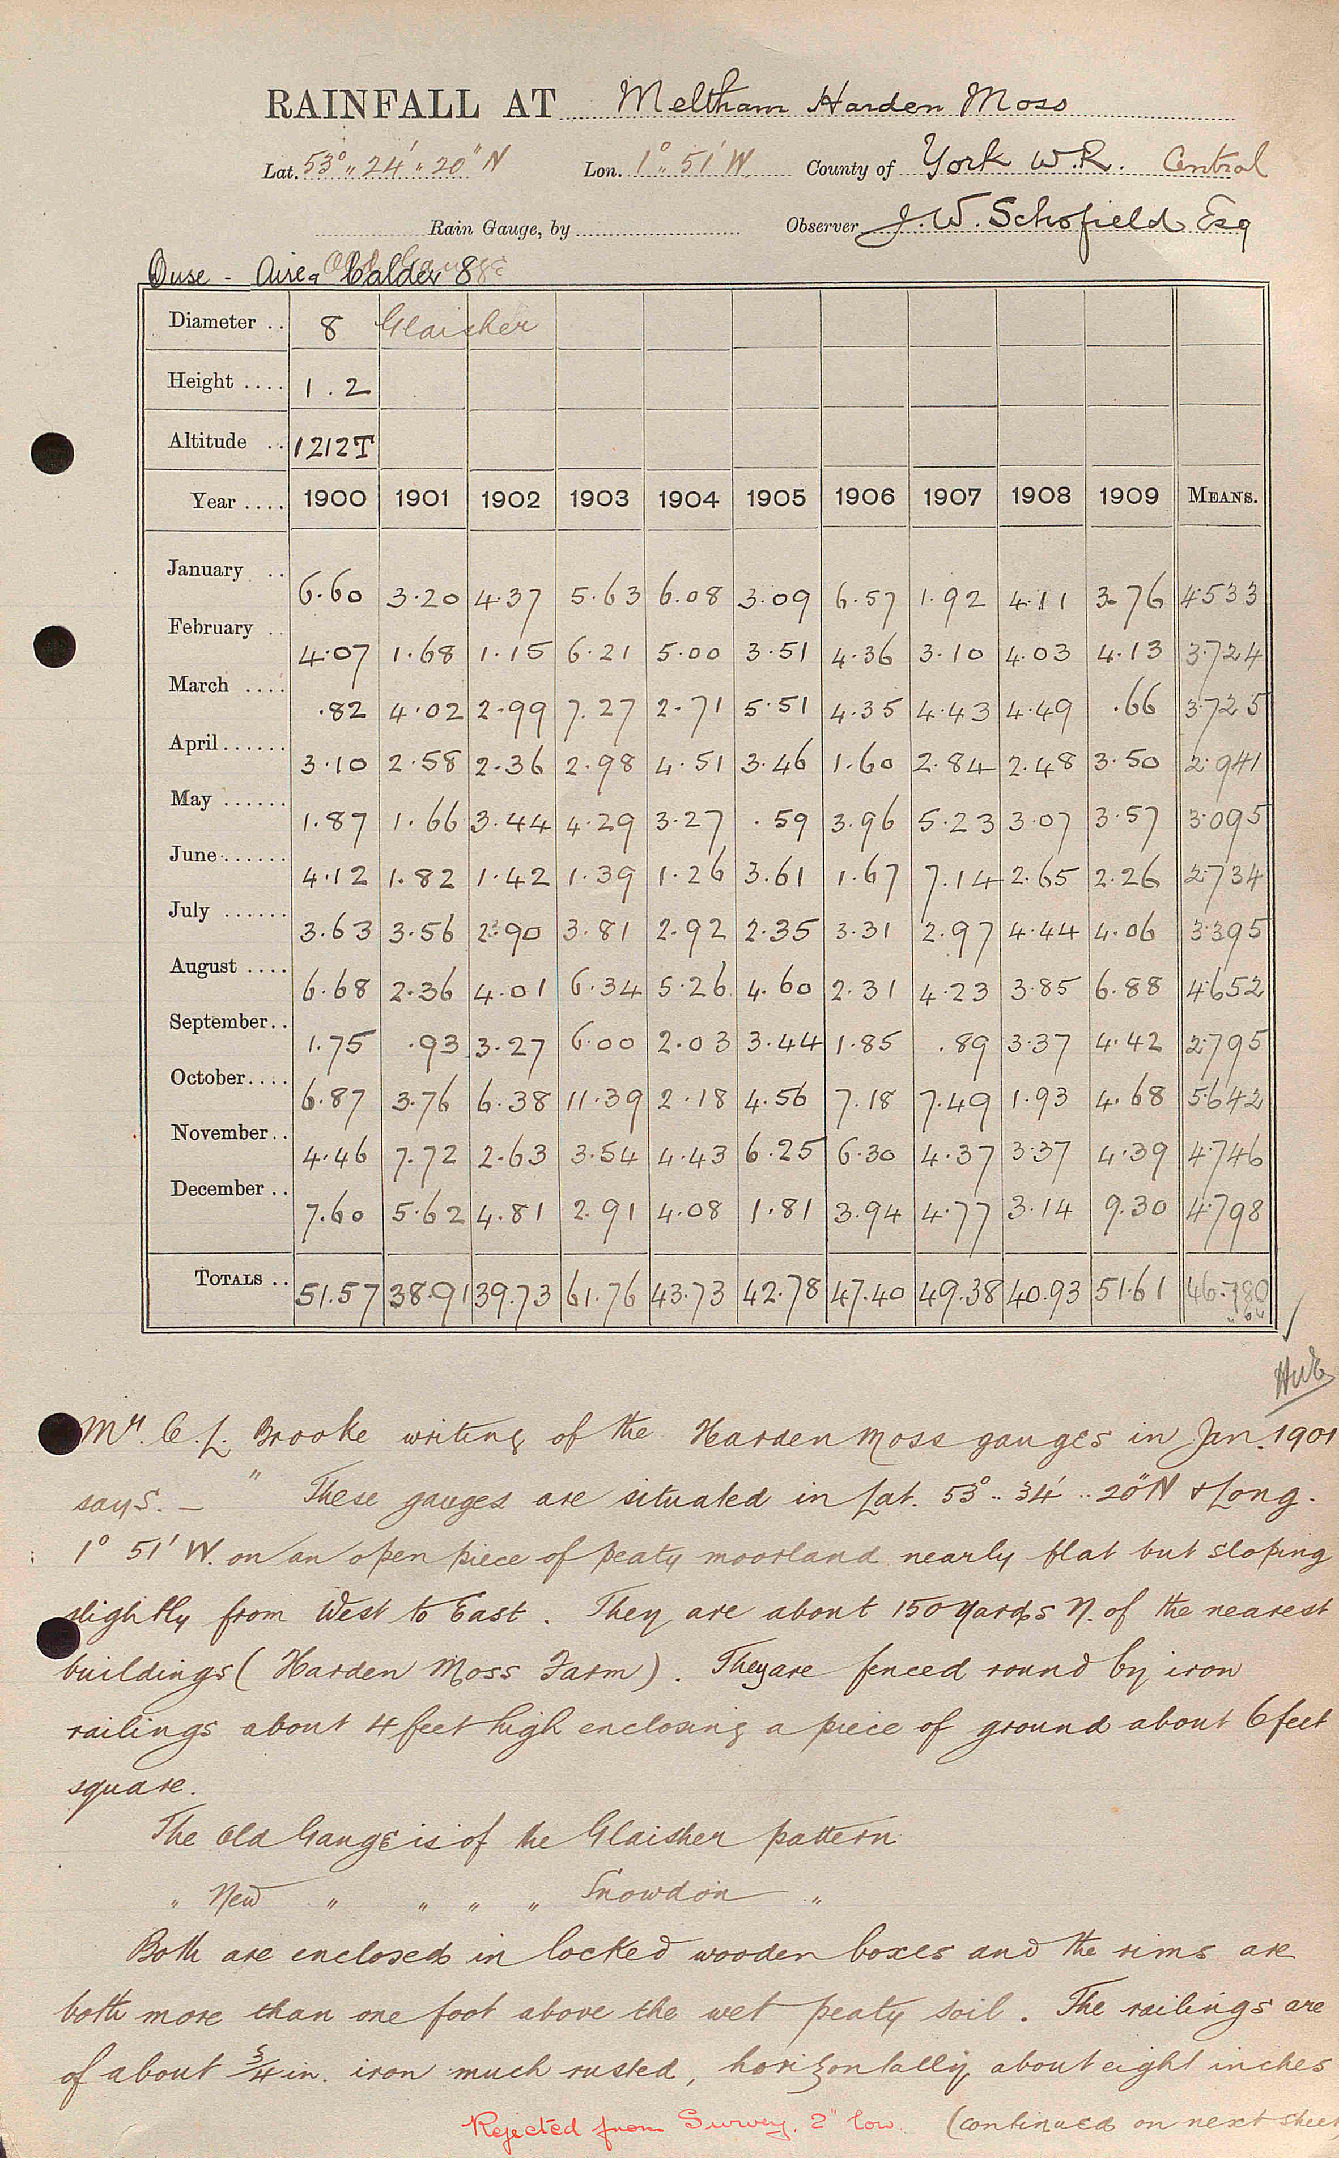 RAINFALL AT Meltham Harden Moss
Lat. 53° 24' 20" N Lon. 1° 51' W County of York W.R. Central
Rain Gauge, by Observer J. W. Schofield Esq
Ouse - Aire & Calder 8
Diameter .. 8 Glaisher
Height .... 1.2
Altitude .. 1212T
Year .... 1900 1901 1902 1903 1904 1905 1906 1907 1908 1909 MEANS.
January .. 6.60 3.20 4.37 5.63 6.08 3.09 6.57 1.92 4.11 3.76 4.533
February .. 4.07 1.68 1.15 6.21 5.00 3.51 4.36 3.10 4.03 4.13 3.724
March .... .82 4.02 2.99 7.27 2.71 5.51 4.35 4.43 4.49 .66 3.725
April ...... 3.10 2.58 2.36 2.98 4.51 3.46 1.60 2.84 2.48 3.50 2.941
May ...... 1.87 1.66 3.44 4.29 3.27 .59 3.96 5.23 3.07 3.57 3.095
June ...... 4.12 1.82 1.42 1.39 1.26 3.61 1.67 7.14 2.65 2.26 2.734
July ...... 3.63 3.56 2.90 3.81 2.92 2.35 3.31 2.97 4.44 4.06 3.395
August .... 6.68 2.36 4.01 6.34 5.26 4.60 2.31 4.23 3.85 6.88 4.652
September.. 1.75 .93 3.27 6.00 2.03 3.44 1.85 .89 3.37 4.42 2.795
October.... 6.87 3.76 6.38 11.39 2.18 4.56 7.18 7.49 1.93 4.68 5.642
November.. 4.46 7.72 2.63 3.54 4.43 6.25 6.30 4.37 3.37 4.39 4.746
December .. 7.60 5.62 4.81 2.91 4.08 1.81 3.94 4.77 3.14 9.30 4.798
TOTALS .. 51.57 38.91 39.73 61.76 43.73 42.78 47.40 49.38 40.93 51.61 46.780
Mr. C. L. Brooke writing of the Harden Moss gauges in Jan. 1901
says. - " These gauges are situated in Lat. 53° 34' 20" N & Long.
1° 51' W. on an open piece of peaty moorland nearly flat but sloping
slightly from West to East. They are about 150 yards N. of the nearest
buildings (Harden Moss Farm). They are fenced round by iron
railings about 4 feet high enclosing a piece of ground about 6 feet
square.
The Old Gauge is of the Glaisher pattern
" New " " " " Snowdon "
Both are enclosed in locked wooden boxes and the rims are
both more than one foot above the wet peaty soil. The railings are
of about 3/4 in. iron much rusted, horizontally about eight inches
Rejected from Survey. 2" low. (continued on next sheet